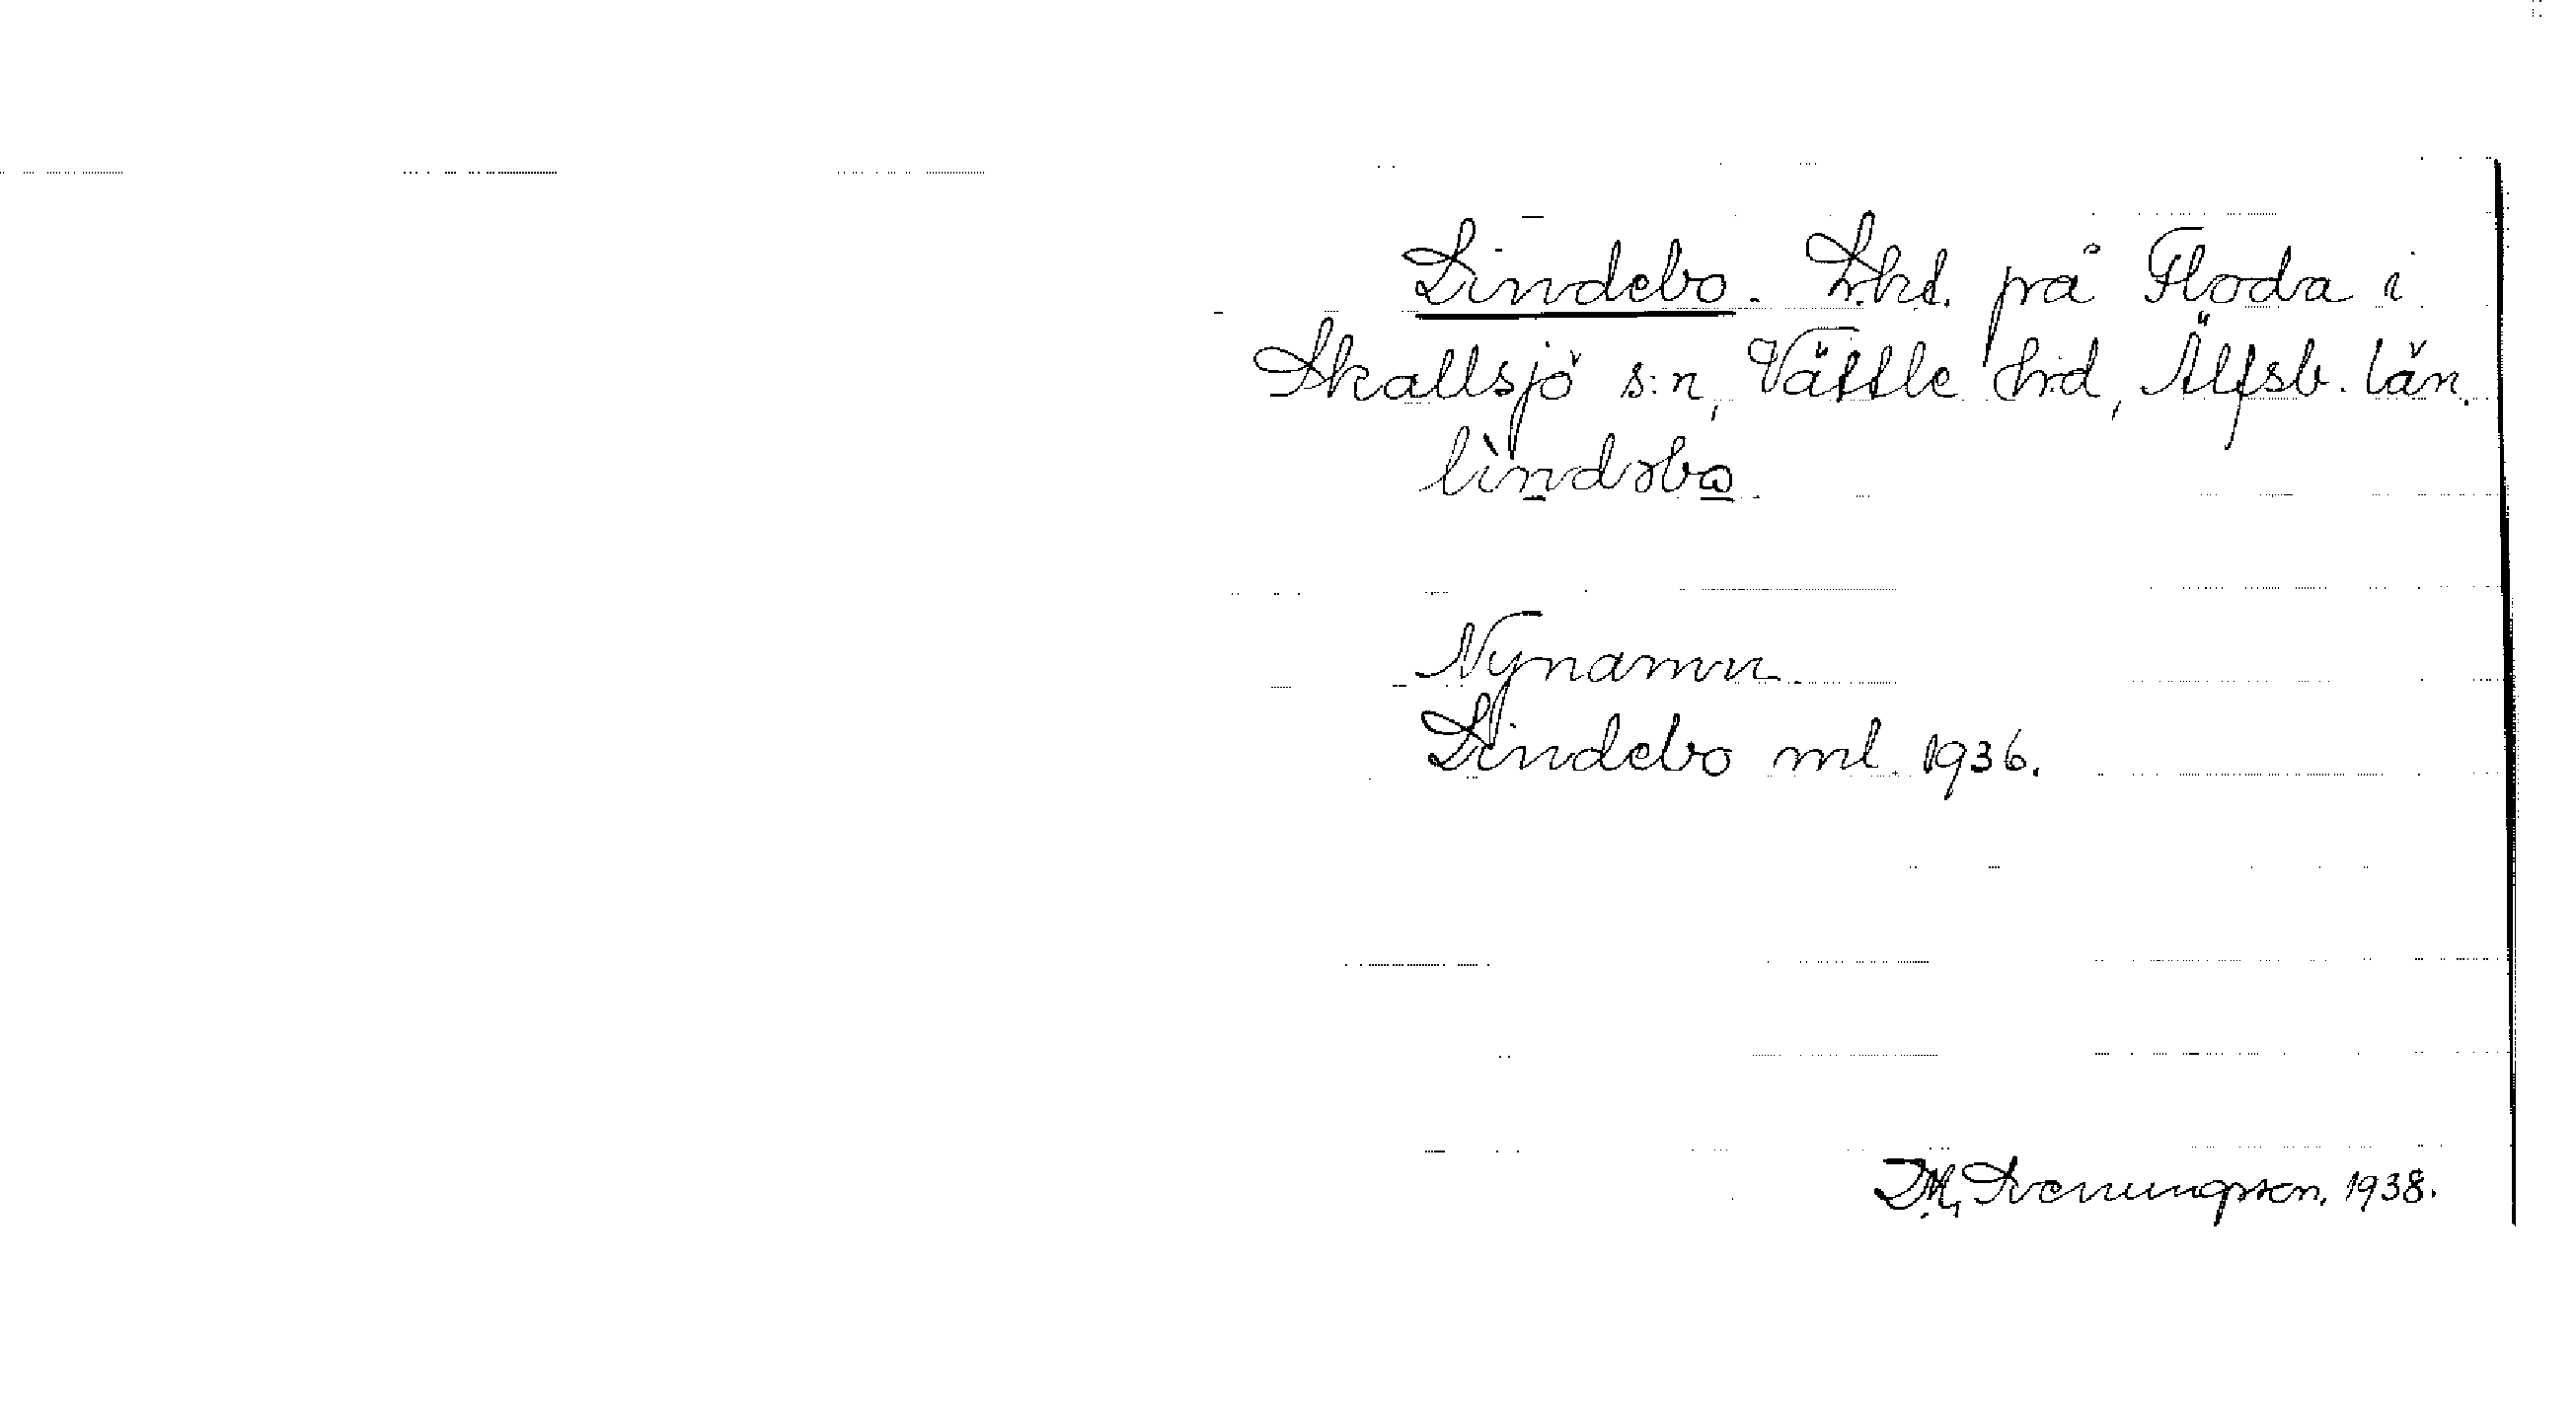 Lindebo. Lhd. på Floda i
Skallsjö s:n, Vättle hrd, Älfsb. län.
lìndəbω
Nynamn.
Lindebo ml. 1936.
Svenungsson, 1938.